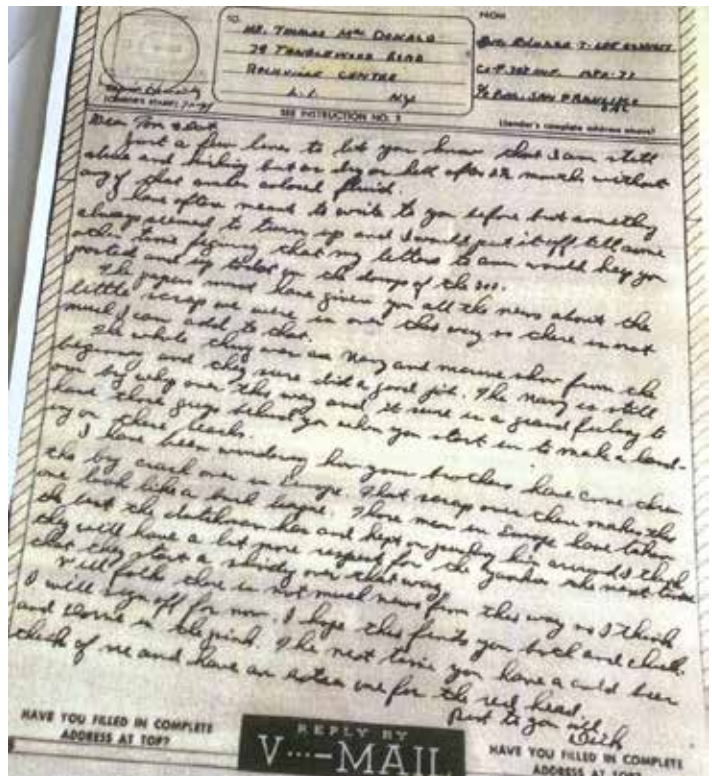 TO:
MR. THOMAS Mac DONALD
79 TANGLEWOOD ROAD
ROCKVILLE CENTRE
L.I. NY.
FROM
Co F. 305 INF. APO-77
C/O P.M. SAN FRANCISCO
(CENSOR'S STAMP)
SEE INSTRUCTION NO. 2
(Sender's complete address above)
Dear Tom &
Just a few lines to let you know that I am still
alive and kicking but as dry as hell after 2½ months without
any of that amber colored fluid.
I have often meant to write to you before but something
always seemed to turn up and I would put it off till some
other time figuring that my letters to ann would keep you
posted and up to date on the doings of the 305.
The papers must have given you all the news about the
little scrap we were in over this way so there is not
much I can add to that.
The whole thing was a Navy and marine show from the
beginning and they sure did a good job. The Navy is still
over this way and it sure is a grand feeling to
have those guys behind you when you start in to make a land-
ing on these beachs.
I have been wondering how your brothers have come thru
the big crack over in Europe. That scrap over there makes this
one look like a bush league. Those men in Europe have taken
the best the dutchman has and kept on pushing him around. I think
they will have a lot more respect for the Yankee the next time
that they start a over that way.
Well folks there is not much news from this way so I think
I will sign off for now. I hope this finds you both and chuck
and in the pink. The next time you have a cold beer
think of me and have an extra one for the red head.
Best to you all
Dick
HAVE YOU FILLED IN COMPLETE
ADDRESS AT TOP?
REPLY BY
V···—MAIL
HAVE YOU FILLED IN COMPLETE
ADDRESS AT TOP?